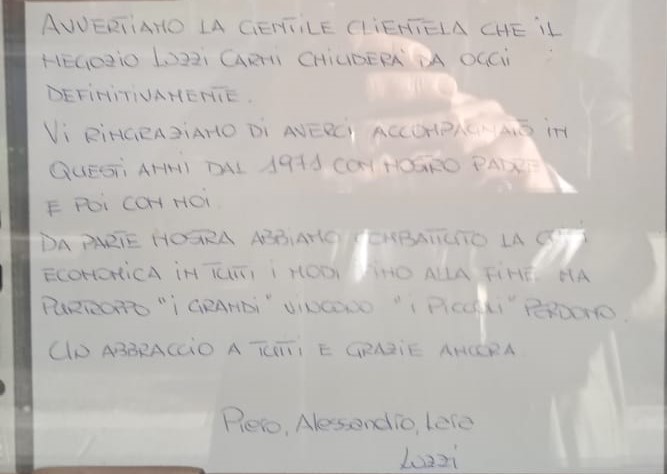 AVVERTIAMO LA GENTILE CLIENTELA CHE IL
NEGOZIO LUZZI CARNI CHIUDERÀ DA OGGI
DEFINITIVAMENTE.
VI RINGRAZIAMO DI AVERCI ACCOMPAGNATO IN
QUESTI ANNI DAL 1971 CON NOSTRO PADRE
E POI CON NOI
DA PARTE NOSTRA ABBIAMO COMBATTUTO LA
ECONOMICA IN TUTTI I MODI FINO ALLA FINE MA
PURTROPPO "I GRANDI" VINCONO "I PICCOLI" PERDONO.
UN ABBRACCIO A TUTTI E GRAZIE ANCORA
Piero, Alessandro, Lara
Luzzi